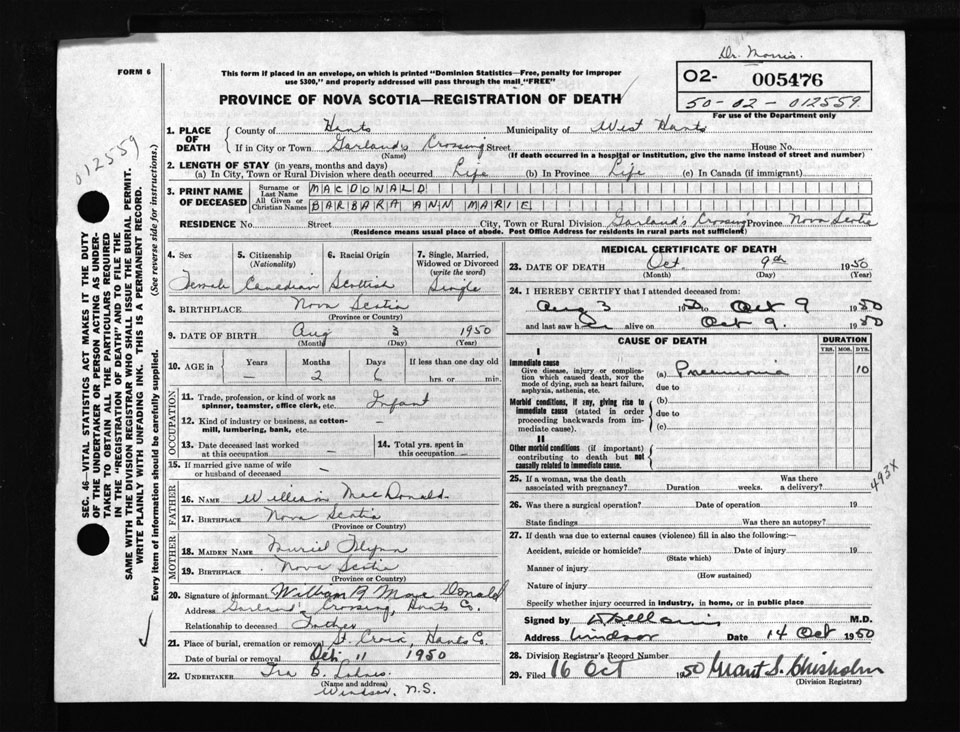 Dr. Morris
FORM 6
This form if placed in an envelope, on which is printed "Dominion Statistics—Free, penalty for improper
use $300," and properly addressed will pass through the mail "FREE"
O2- 005476
50-02-012559
PROVINCE OF NOVA SCOTIA—REGISTRATION OF DEATH
For use of the Department only
012559
SEC. 46—VITAL STATISTICS ACT MAKES IT THE DUTY
OF THE UNDERTAKER OR PERSON ACTING AS UNDER-
TAKER TO OBTAIN ALL THE PARTICULARS REQUIRED
IN THE "REGISTRATION OF DEATH" AND TO FILE THE
SAME WITH THE DIVISION REGISTRAR WHO SHALL ISSUE THE BURIAL PERMIT.
WRITE PLAINLY WITH UNFADING INK. THIS IS A PERMANENT RECORD.
Every item of information should be carefully supplied. (See reverse side for instructions.)
1. PLACE OF DEATH County of Hants Municipality of West Hants
If in City or Town Garland's Crossing Street House No.
(Name) (If death occurred in a hospital or institution, give the name instead of street and number)
2. LENGTH OF STAY (in years, months and days)
(a) In City, Town or Rural Division where death occurred Life (b) In Province Life (c) In Canada (if immigrant)
3. PRINT NAME OF DECEASED Surname or Last Name MACDONALD
All Given or Christian Names BARBARA ANN MARIE
RESIDENCE No. Street City, Town or Rural Division Garland's Crossing Province Nova Scotia
(Residence means usual place of abode. Post Office Address for residents in rural parts not sufficient)
4. Sex 5. Citizenship (Nationality) 6. Racial Origin 7. Single, Married, Widowed or Divorced (write the word)
Female Canadian Scottish Single
8. BIRTHPLACE Nova Scotia
(Province or Country)
9. DATE OF BIRTH Aug 3 1950
(Month) (Day) (Year)
10. AGE in Years Months Days If less than one day old
— 2 6 hrs. or min.
OCCUPATION
11. Trade, profession, or kind of work as
spinner, teamster, office clerk, etc. Infant
12. Kind of industry or business, as cotton-
mill, lumbering, bank, etc. —
13. Date deceased last worked
at this occupation —
14. Total yrs. spent in
this occupation —
15. If married give name of wife
or husband of deceased —
FATHER
16. NAME William MacDonald
17. BIRTHPLACE Nova Scotia
(Province or Country)
MOTHER
18. MAIDEN NAME Muriel Flynn
19. BIRTHPLACE Nova Scotia
(Province or Country)
20. Signature of informant William A Mac Donald
Address Garland's Crossing, Hants Co.
Relationship to deceased Father
21. Place of burial, cremation or removal St. Croix, Hants Co.
Date of burial or removal Oct. 11 1950
22. UNDERTAKER Ira B. Lohnes
(Name and address)
Windsor, N.S.
MEDICAL CERTIFICATE OF DEATH
23. DATE OF DEATH Oct. 9th 1950
(Month) (Day) (Year)
24. I HEREBY CERTIFY that I attended deceased from:
Aug 3 1950 to Oct 9 1950
and last saw her alive on Oct 9. 1950
CAUSE OF DEATH DURATION
YRS. MOS. DYS.
I
Immediate cause
Give disease, injury or complica-
tion which caused death, NOT the
mode of dying, such as heart failure,
asphyxia, asthenia, etc.
(a) Pneumonia 10
due to
Morbid conditions, if any, giving rise to
immediate cause (stated in order
proceeding backwards from im-
mediate cause).
(b)
due to
(c)
II
Other morbid conditions (if important)
contributing to death but not
causally related to immediate cause.
493X
25. If a woman, was the death
associated with pregnancy? Duration weeks. Was there
a delivery?
26. Was there a surgical operation? Date of operation 19
State findings Was there an autopsy?
27. If death was due to external causes (violence) fill in also the following:—
Accident, suicide or homicide? Date of injury 19
(State which)
Manner of injury
(How sustained)
Nature of injury
Specify whether injury occurred in industry, in home, or in public place
Signed by M.D.
Address Windsor Date 14 Oct 1950
28. Division Registrar's Record Number
29. Filed 16 Oct 1950 Grant S. Chisholm
(Division Registrar)